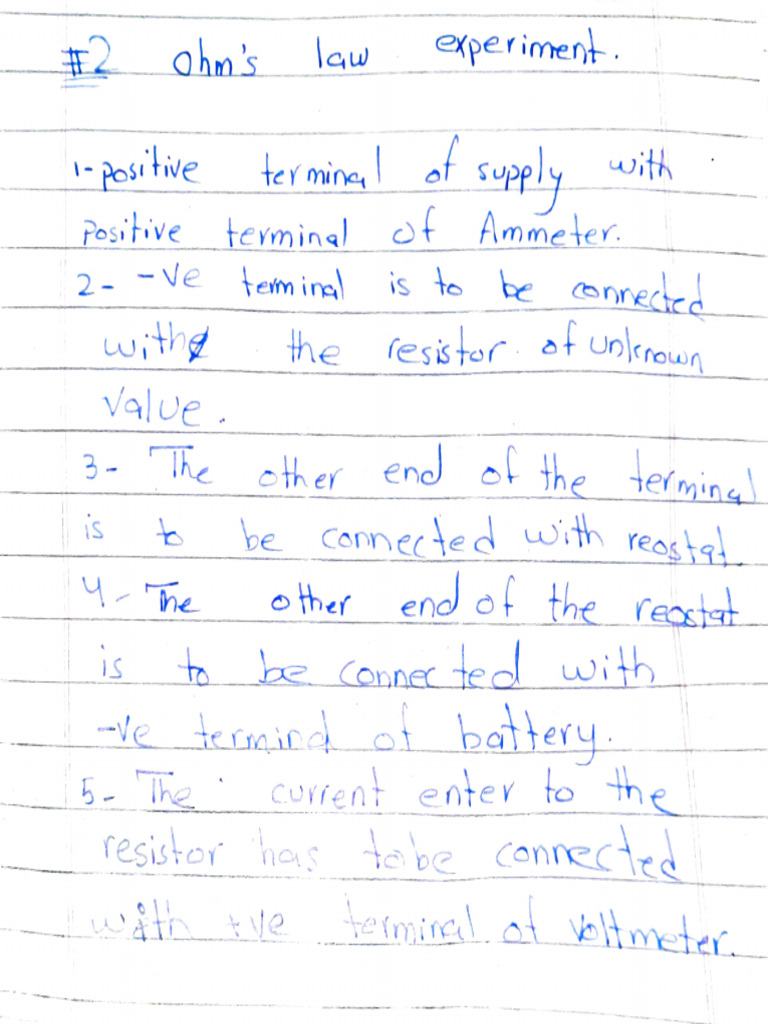 #2 Ohm's law experiment.
1-positive terminal of supply with
Positive terminal of Ammeter.
2- -ve terminal is to be connected
with the resistor of unknown
value.
3- The other end of the terminal
is to be connected with reostat.
4- The other end of the reostat
is to be connected with
-ve terminal of battery.
5- The current enter to the
resistor has to be connected
with +ve terminal of voltmeter.